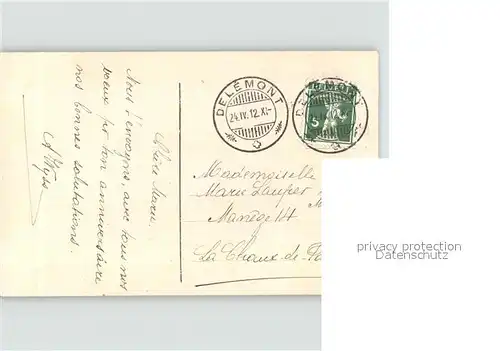 Chère Marie.
Nous t'envoyons, avec tous nos
vœux pr ton anniversaire
nos bonnes salutations.
A. Wyss
DELÉMONT
24.IV.12.XI-
DELÉMONT
5
Mademoiselle
Marie
Manège 14
La Chaux-de-
privacy protection
Datenschutz